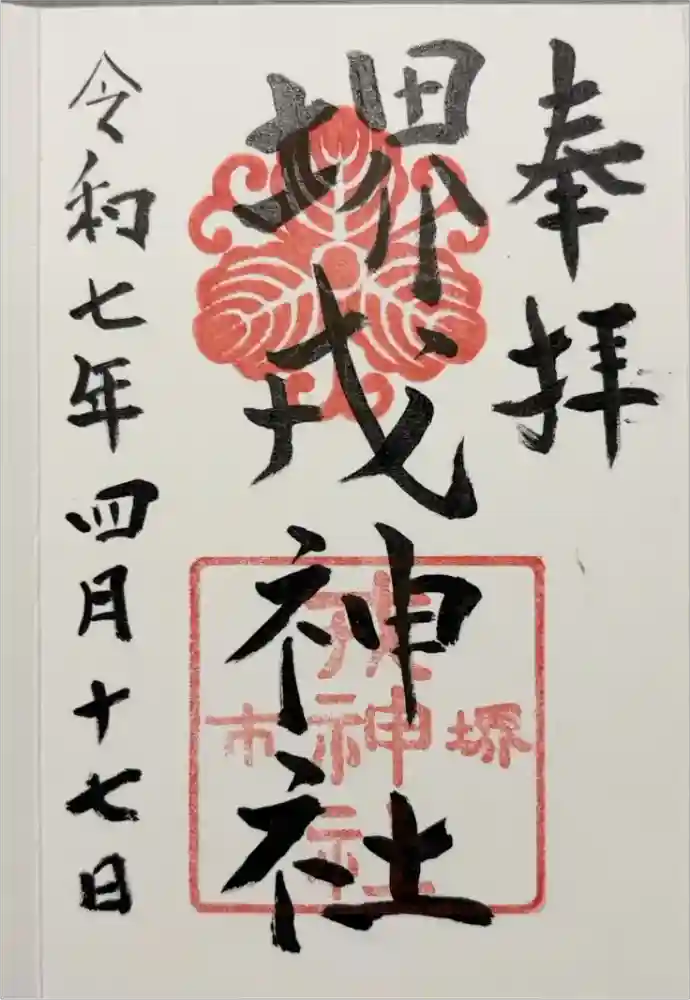 奉拝
堺戎神社
令和七年四月十七日
堺
戎神社
市